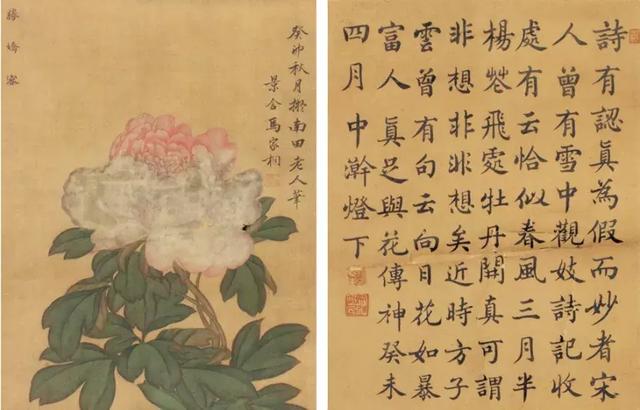 癸卯秋月擬南田老人筆
景含馬家桐
嬌容
詩有認眞為假而妙者宋
人曾有雪中觀妓詩記收
處有云恰似春風三月半
楊花飛處牡丹開真可謂
非想非非想矣近時方子
雲曾有句云向日花如暴
富人眞足與花傳神癸未
四月中澣燈下